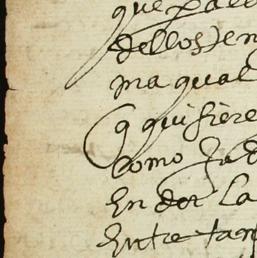 que
dellos) en
ma qual
q quisiere
como
En dos La
Entre tan